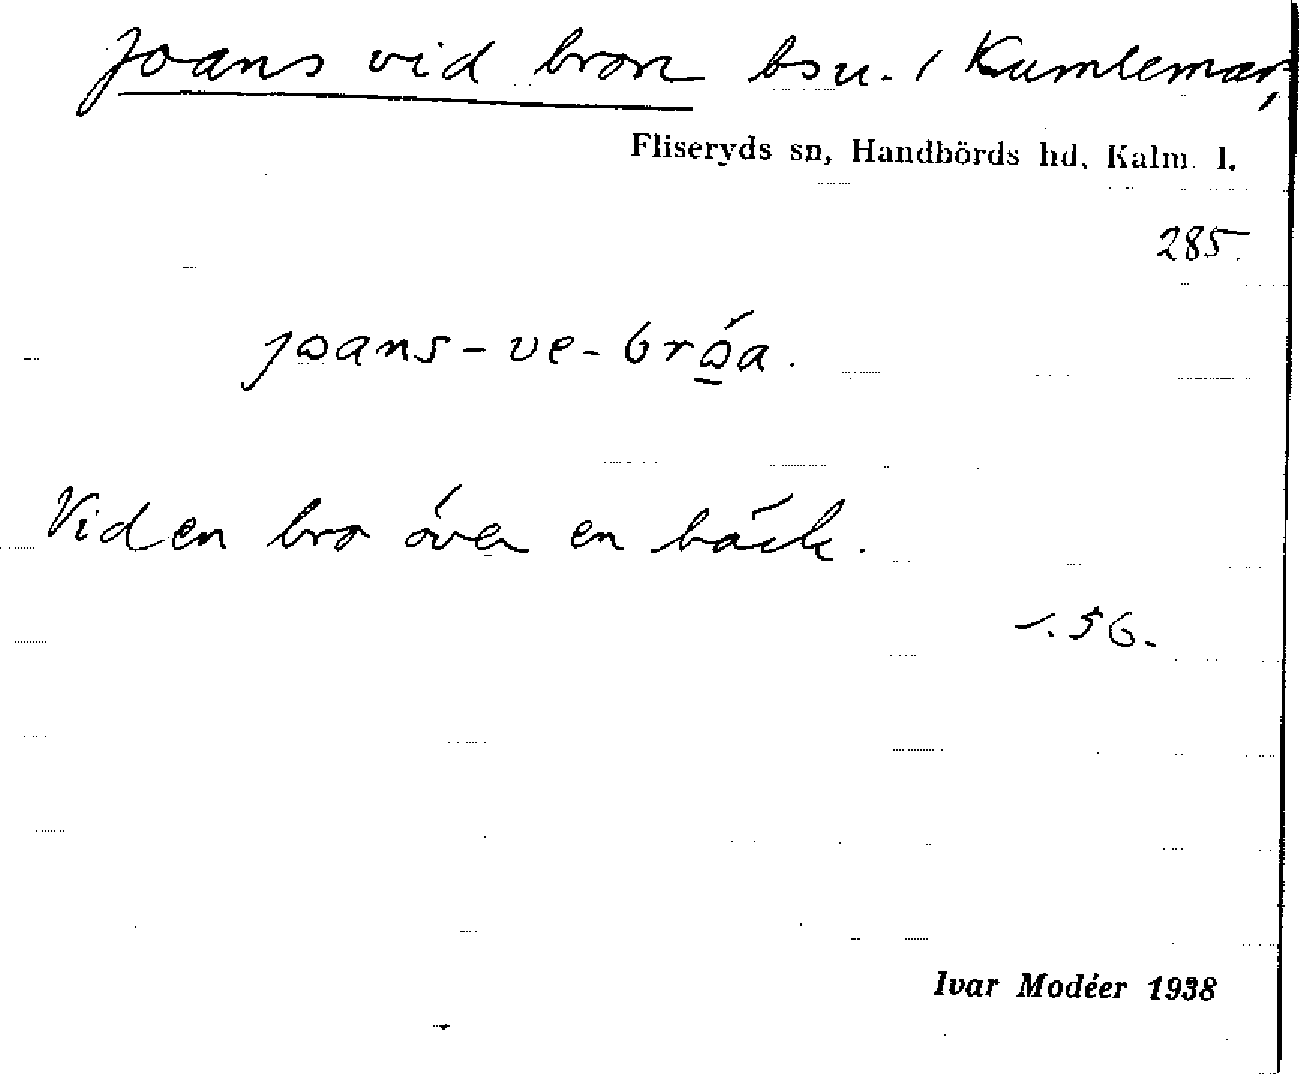 Joans vid bron bsn. i Kumlemar,
Fliseryds sn, Handbörds hd, Kalm. l.
285.
joans-ve-bróa.
Vid en bro över en bäck.
1.56.
Ivar Modéer 1938